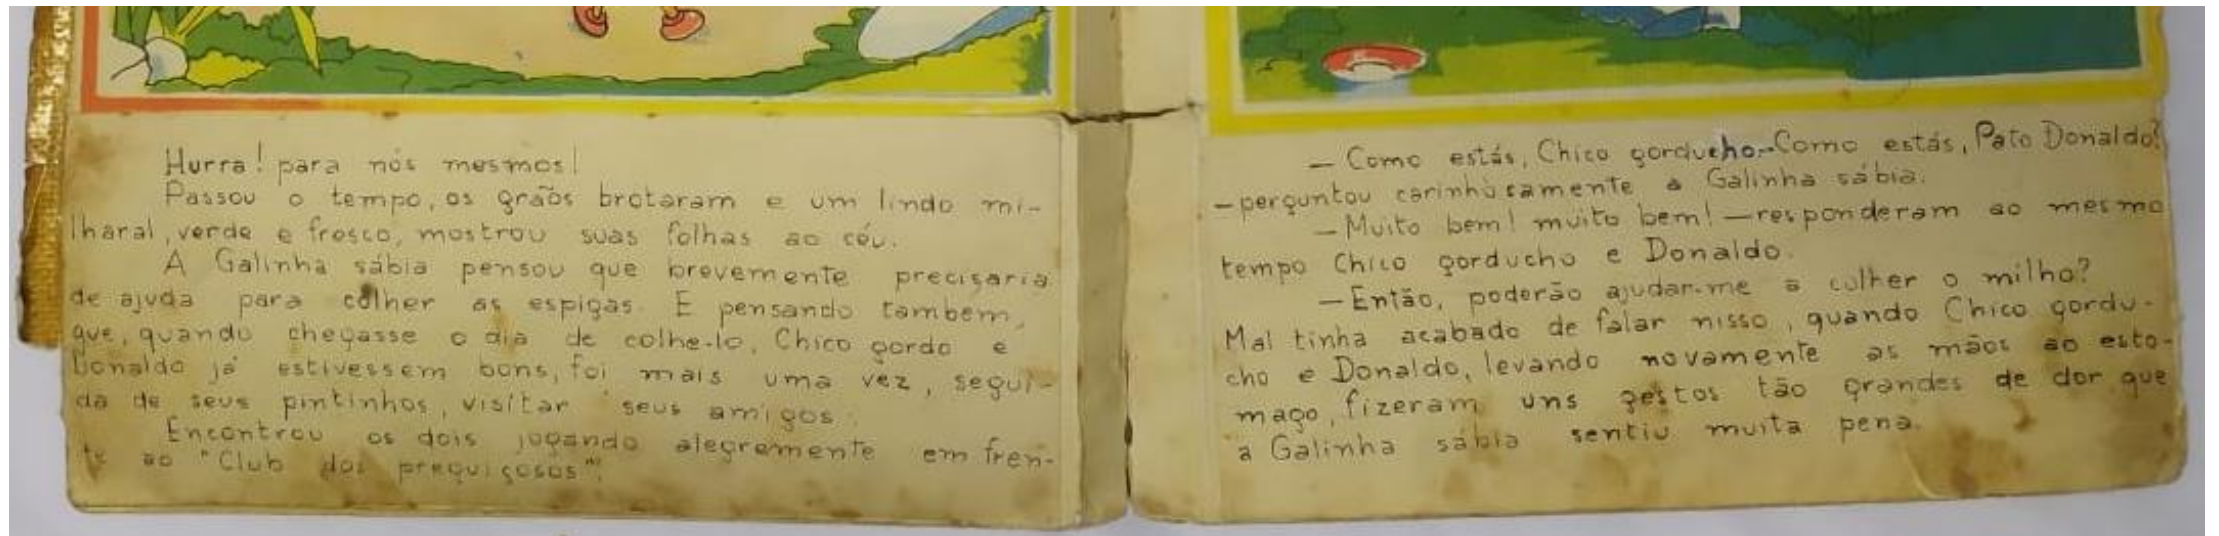 Hurra! para nós mesmos!
Passou o tempo, os grãos brotaram e um lindo mi-
lharal, verde e fresco, mostrou suas folhas ao céu.
A Galinha sábia pensou que brevemente precisaria
de ajuda para colher as espigas. E pensando tambem,
que, quando chegasse o dia de colhe-lo, Chico gordo e
Donaldo já estivessem bons, foi mais uma vez, segui-
da de seus pintinhos, visitar seus amigos.
Encontrou os dois jogando alegremente em fren-
te ao "Club dos preguiçosos".
— Como estás, Chico gorducho-Como estás, Pato Donaldo?
—perguntou carinhosamente a Galinha sábia.
—Muito bem! muito bem! —responderam ao mesmo
tempo Chico gorducho e Donaldo.
—Então, poderão ajudar-me a colher o milho?
Mal tinha acabado de falar nisso, quando Chico gordu-
cho e Donaldo, levando novamente as mãos ao esto-
mago, fizeram uns gestos tão grandes de dor que
a Galinha sábia sentiu muita pena.